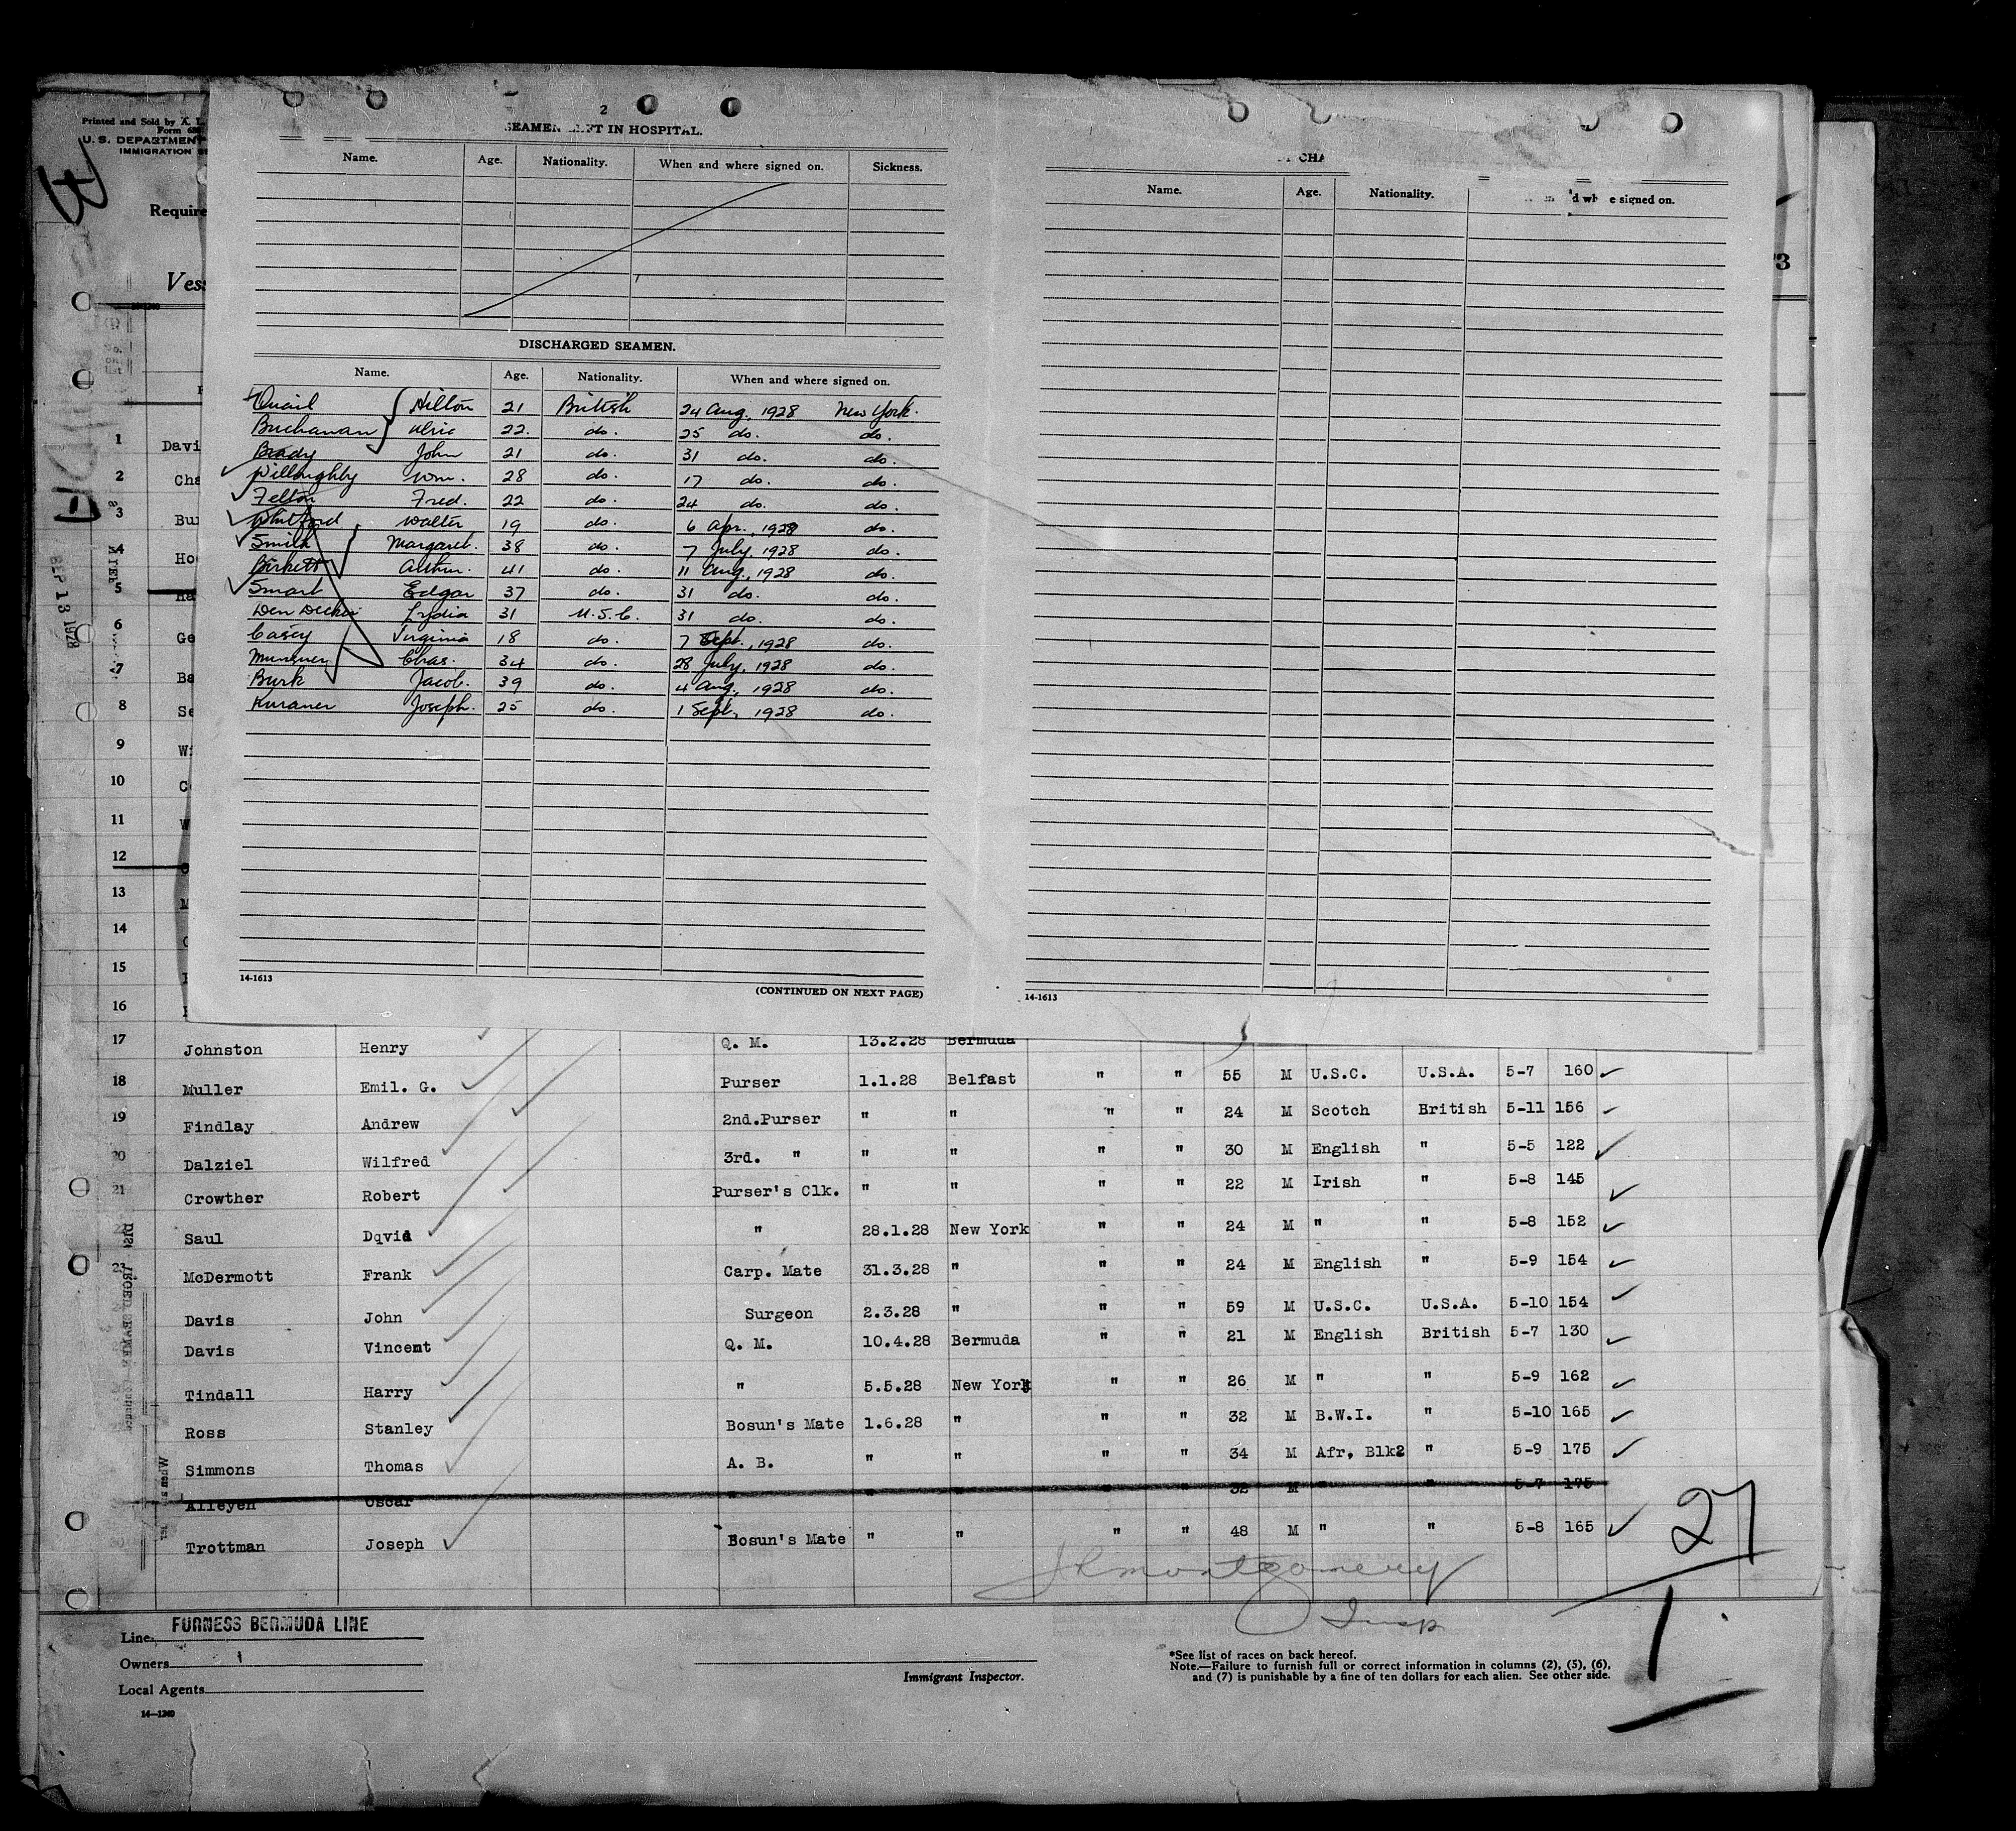 Printed and Sold by A. L.
Form 68
U. S. DEPARTMENT
IMMIGRATION SE
Require
Vess
2
SEAMEN LEFT IN HOSPITAL.
Name. Age. Nationality. When and where signed on. Sickness.
DISCHARGED SEAMEN.
Name. Age. Nationality. When and where signed on.
Quail Hilton 21 British 24 Aug. 1928 New York.
Buchanan Alric 22. do. 25 do. do.
Brady John 21 do. 31 do. do.
Willoughby Wm. 28 do. 17 do. do.
Felton Fred. 22 do. 24 do. do.
Whitford Walter 19 do. 6 Apr., 1928 do.
Smith Margaret. 38 do. 7 July, 1928 do.
Birkett Arthur. 41 do. 11 Aug., 1928 do.
Smart Edgar 37 do. 31 do. do.
Den Decker Lydia 31 U.S.C. 31 do. do.
Casey Virginia 18 do. 7 Sept., 1928 do.
Chas. 34 do. 28 July, 1928 do.
Burk Jacob. 39 do. 4 Aug. 1928 do.
Kuraner Joseph. 25 do. 1 Sept. 1928 do.
14-1613
(CONTINUED ON NEXT PAGE)
CHA
Name. Age. Nationality. signed on.
14-1613
73
SEP 13 1928
1 Davi
2 Cha
3 Bu
4 Ho
5 Ha
6 Ge
7 Ba
8 Se
9 Wi
10 C
11 W
12
13 M
14
15
16
17 Johnston Henry Q. M. 13.2.28 Bermuda
18 Muller Emil. G. Purser 1.1.28 Belfast " " 55 M U.S.C. U.S.A. 5-7 160
19 Findlay Andrew 2nd.Purser " " " " 24 M Scotch British 5-11 156
20 Dalziel Wilfred 3rd. " " " " " 30 M English " 5-5 122
21 Crowther Robert Purser's Clk. " " " " 22 M Irish " 5-8 145
Saul Dqvid " 28.1.28 New York " " 24 M " " 5-8 152
23 McDermott Frank Carp. Mate 31.3.28 " " " 24 M English " 5-9 154
Davis John Surgeon 2.3.28 " " " 59 M U.S.C. U.S.A. 5-10 154
Davis Vincent Q. M. 10.4.28 Bermuda " " 21 M English British 5-7 130
Tindall Harry " 5.5.28 New York " " 26 M " " 5-9 162
Ross Stanley Bosun's Mate 1.6.28 " " " 32 M B.W.I. " 5-10 165
Simmons Thomas A. B. " " " " 34 M Afr, Blk2 " 5-9 175
Alleyen Oscar " " " " " 32 M " " 5-7 175
Trottman Joseph Bosun's Mate " " " " 48 M " " 5-8 165
27
1
JR Montgomery
Insp
Line FURNESS BERMUDA LINE
Owners
Local Agents
14-1240
Immigrant Inspector.
*See list of races on back hereof.
Note.—Failure to furnish full or correct information in columns (2), (5), (6),
and (7) is punishable by a fine of ten dollars for each alien. See other side.